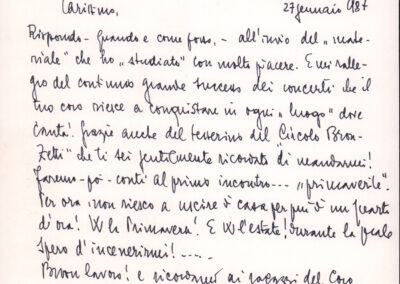 Carissimo,
27 gennaio 1987
Rispondo - quando e come posso, - all'invio del „mate-
riale" che ho „studiato" con molto piacere. E mi ralle-
gro del continuo grande successo dei concerti che il
tuo coro riesce a conquistare in ogni „luogo" dove
canta! Grazie anche del tesserino del „Circolo Bron-
zetti" che ti sei gentilmente ricordato di mandarmi!
Faremo - poi - conti al primo incontro... „primaverile".
Per ora non riesco a uscire di casa per più d'un quarto
d'ora! W la Primavera! E W l'estate! durante la quale
spero d'incenerirmi!.....
Buon lavoro! e ricordami ai ragazzi del Coro